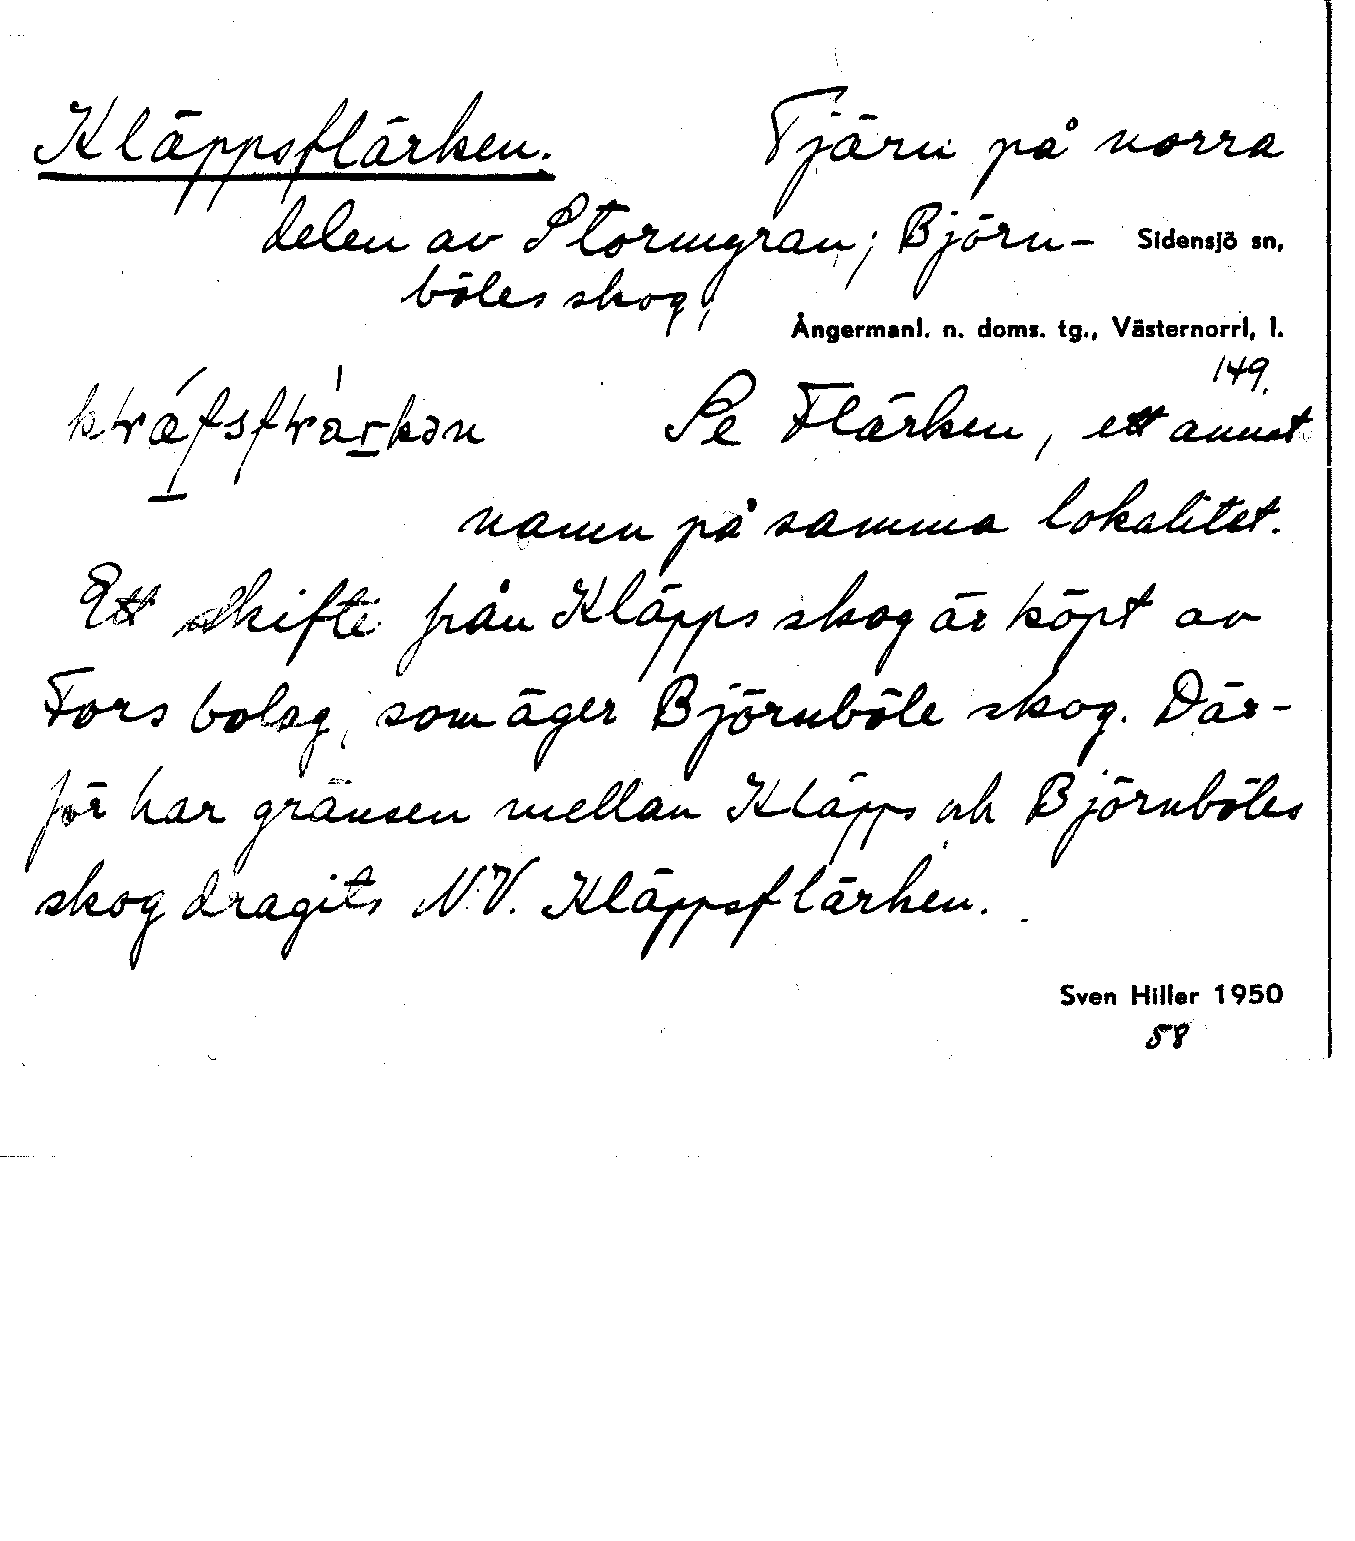 Kläppsflärken. Tjärn på norra
delen av Stormyran; Björn- Sidensjö sn,
böles skog,
Ångermanl. n. doms. tg., Västernorrl, l.
149.
Se Flärken, ett annat
namn på samma lokalitet.
Ett skifte från Kläpps skog är köpt av
Fors bolag, som äger Björnböle skog. Där-
för har gränsen mellan Kläpps och Björnböles
skog dragits N.V. Kläppsflärken.
Sven Hiller 1950
58